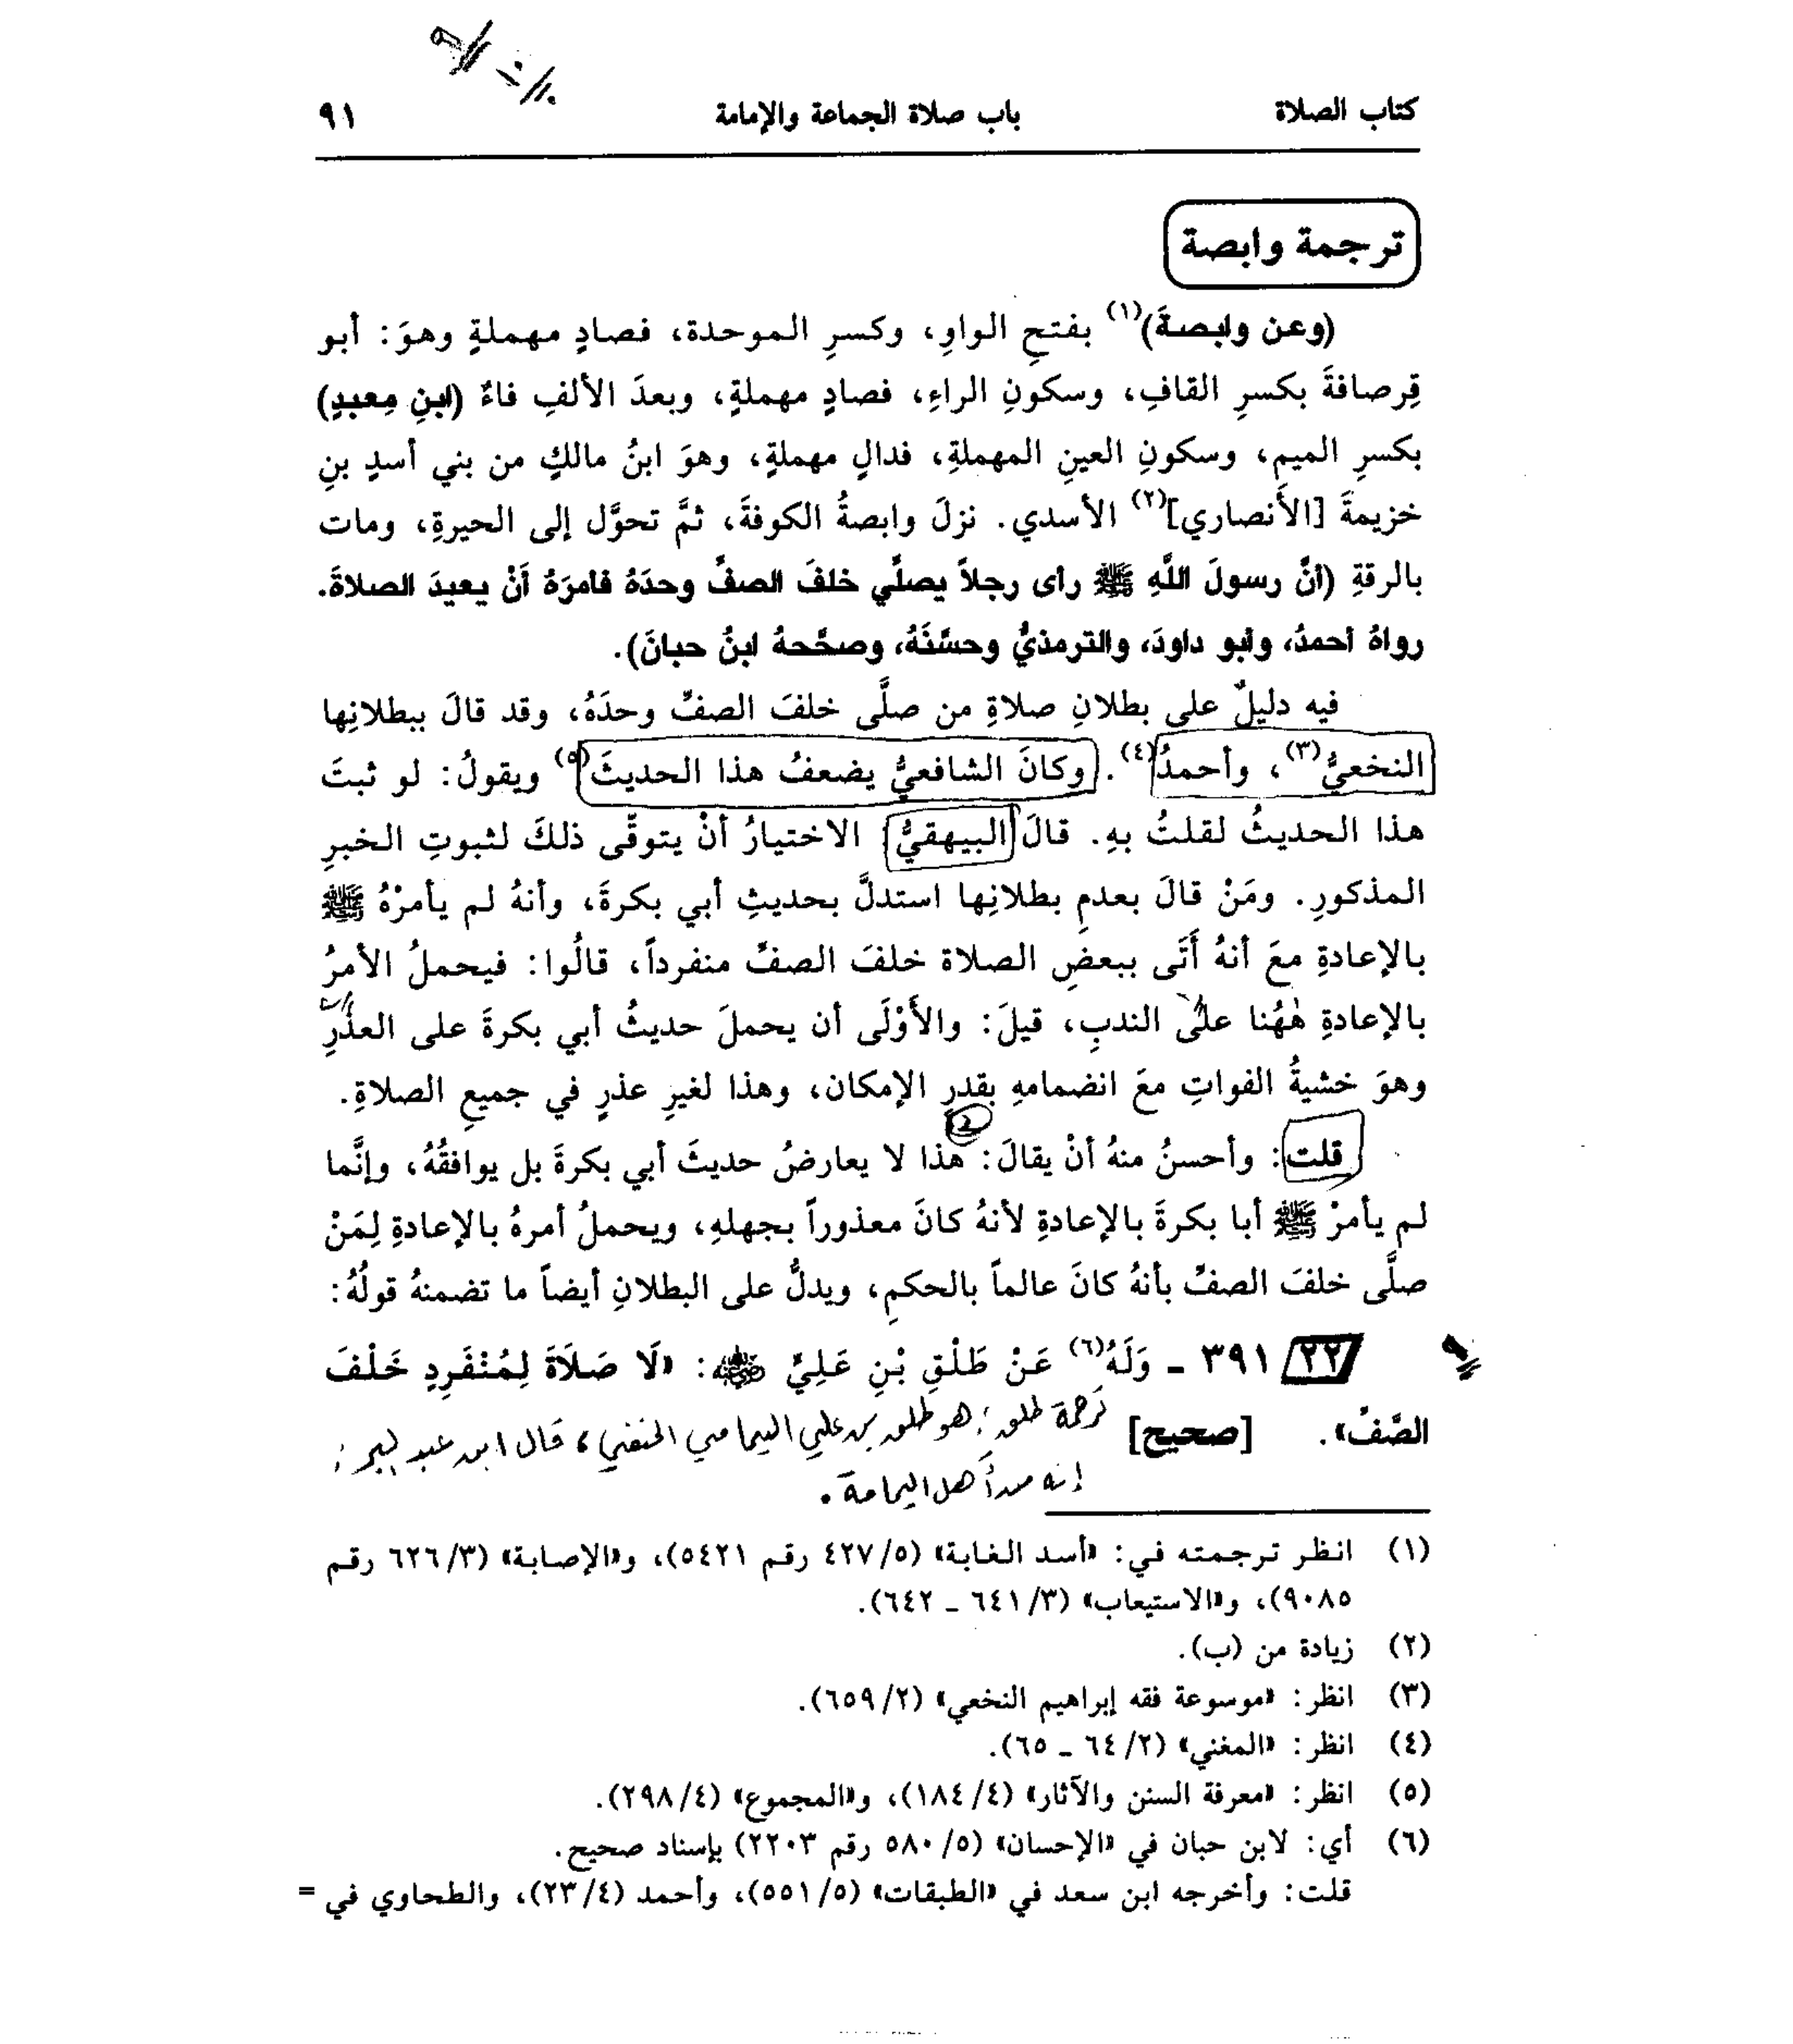 كتاب الصلاة باب صلاة الجماعة والإمامة ٩١
ترجمة وابصة
(وعن وابصةَ)(١) بفتحِ الواوِ، وكسرِ الموحدة، فصادٍ مهملةٍ وهوَ: أبو
قِرصافةَ بكسرِ القافِ، وسكونِ الراءِ، فصادٍ مهملةٍ، وبعدَ الألفِ فاءٌ (ابنِ مِعبدٍ)
بكسرِ الميمِ، وسكونِ العينِ المهملةِ، فدالٍ مهملةٍ، وهوَ ابنُ مالكٍ من بني أسدٍ بنِ
خزيمةَ [الأَنصاري](٢) الأسدي. نزلَ وابصةُ الكوفةَ، ثمَّ تحوَّل إلى الحيرةِ، ومات
بالرقةِ (أنَّ رسولَ اللَّهِ ﷺ رأى رجلاً يصلَّي خلفَ الصفِّ وحدَهُ فأمرَهُ أَنْ يعيدَ الصلاةَ.
رواهُ أحمدُ، وأبو داودَ، والترمذيُّ وحسَّنَهُ، وصحَّحهُ ابنُ حبانَ).
فيه دليلٌ على بطلانِ صلاةِ من صلَّى خلفَ الصفِّ وحدَهُ، وقد قالَ ببطلانِها
النخعيُّ(٣)، وأحمدُ(٤). وكانَ الشافعيُّ يضعفُ هذا الحديثَ(٥) ويقولُ: لو ثبتَ
هذا الحديثُ لقلتُ بهِ. قالَ البيهقيُّ الاختيارُ أنْ يتوقَّى ذلكَ لثبوتِ الخبرِ
المذكورِ. ومَنْ قالَ بعدمِ بطلانِها استدلَّ بحديثِ أبي بكرةَ، وأنهُ لم يأمرْهُ ﷺ
بالإعادةِ معَ أنهُ أَتَى ببعضِ الصلاة خلفَ الصفِّ منفرداً، قالُوا: فيحملُ الأمرُ
بالإعادةِ هٰهُنا على الندبِ، قيلَ: والأَوْلَى أن يحملَ حديثُ أبي بكرةَ على العذْرِ
وهوَ خشيةُ الفواتِ معَ انضمامهِ بقدرِ الإمكان، وهذا لغيرِ عذرٍ في جميعِ الصلاةِ.
قلت: وأحسنُ منهُ أنْ يقالَ: هذا لا يعارضُ حديثَ أبي بكرةَ بل يوافقُهُ، وإنَّما
لم يأمرْ ﷺ أبا بكرةَ بالإعادةِ لأنهُ كانَ معذوراً بجهلهِ، ويحملُ أمرهُ بالإعادةِ لِمَنْ
صلَّى خلفَ الصفِّ بأنهُ كانَ عالماً بالحكمِ، ويدلُّ على البطلانِ أيضاً ما تضمنهُ قولُهُ:
٢٢/ ٣٩١ ـ وَلَهُ(٦) عَنْ طَلْقِ بْنِ عَلِيٍّ رضي الله عنه: «لَا صَلَاةَ لِمُنْفَرِدٍ خَلْفَ
الصَّفِّ». [صحيح] ترجمة طلق: هو طلق بن علي اليمامي الحنفي، قال ابن عبد البر:
إنه من أهل اليمامة.
(١) انظر ترجمته في: «أسد الغابة» (٤٢٧/٥ رقم ٥٤٢١)، و«الإصابة» (٦٢٦/٣ رقم
٩٠٨٥)، و«الاستيعاب» (٦٤١/٣ ـ ٦٤٢).
(٢) زيادة من (ب).
(٣) انظر: «موسوعة فقه إبراهيم النخعي» (٦٥٩/٢).
(٤) انظر: «المغني» (٦٤/٢ ـ ٦٥).
(٥) انظر: «معرفة السنن والآثار» (١٨٤/٤)، و«المجموع» (٢٩٨/٤).
(٦) أي: لابن حبان في «الإحسان» (٥٨٠/٥ رقم ٢٢٠٣) بإسناد صحيح.
قلت: وأخرجه ابن سعد في «الطبقات» (٥٥١/٥)، وأحمد (٢٣/٤)، والطحاوي في =